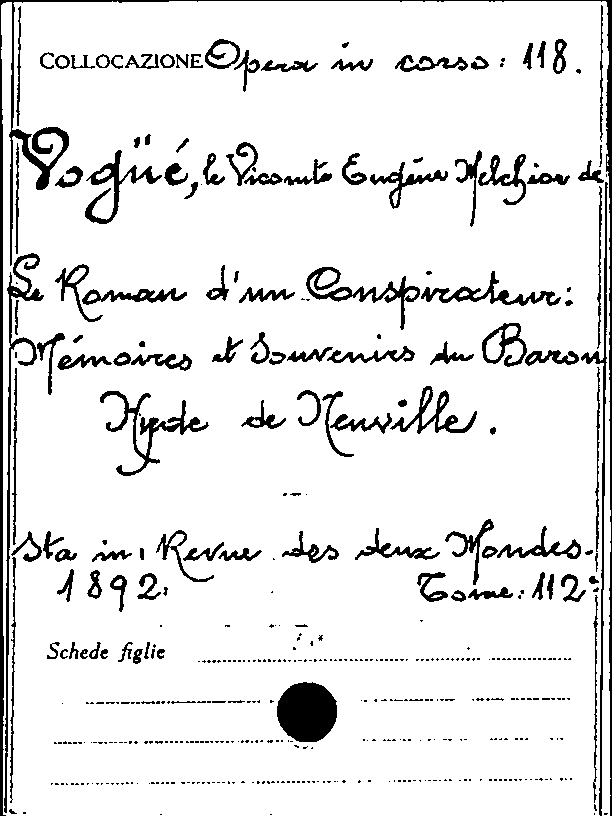 COLLOCAZIONE Opera in corso: 118.
Vogüé, le Vicomte Eugène Melchior de
Le Roman d'un Conspirateur:
Mémoires et Souvenirs du Baron
Hyde de Neuville.
Sta in: Revue des deux Mondes.
1892. Tome: 112°
Schede figlie